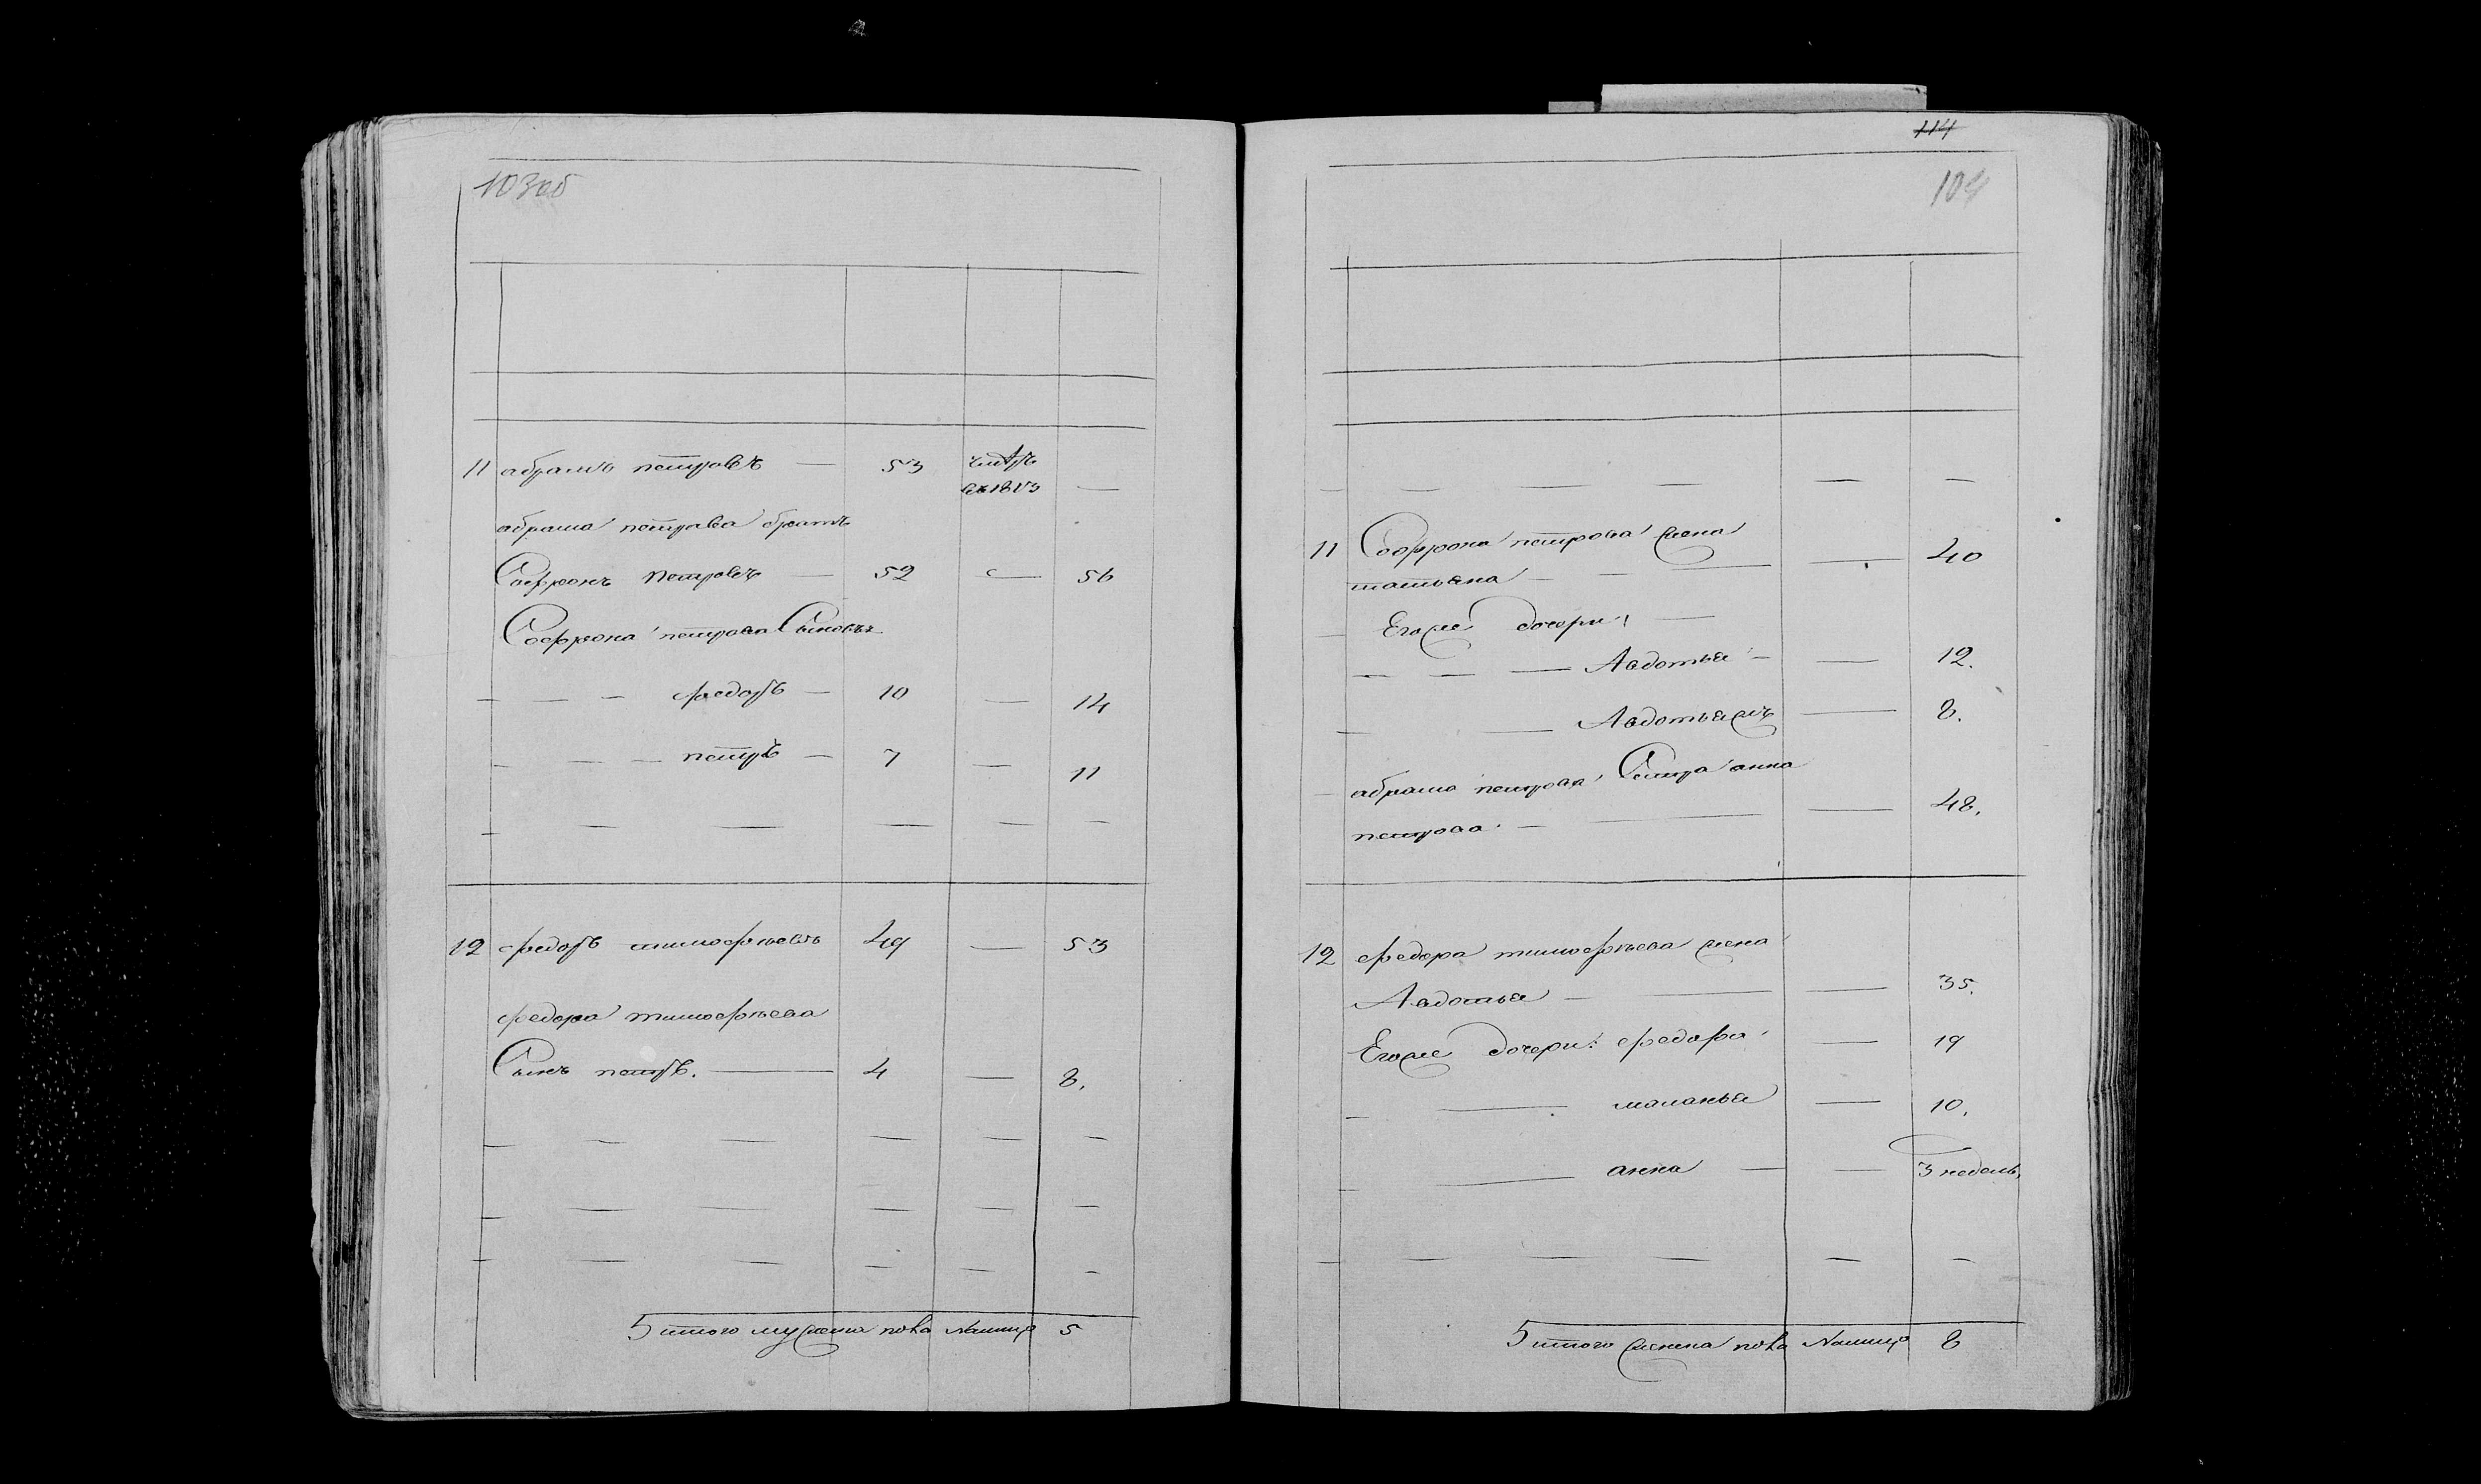 103об
11 абрамъ петровъ — 53 умѣръ
въ 1813 —
абрама петрова братъ
Софронъ петровъ — 52 — 56
Софрона петрова Сыновья
— — — федоръ — 10 — 14
— — — петръ — 7 — 11
— — — — — —
12 федоръ тимофѣевъ 49 — 53
федора тимофѣева
Сынъ петръ. — 4 — 8.
— — — — — —
— — — — — —
— — — — — —
итого мужеска пола налицо 5
114
104
— — — — — —
11 Софрона петрова жена
татьяна — — — — 40
Егоже дочери: —
— — — Авдотья — — 12.
— — Авдотьяжъ — 8.
абрама петрова Сестра анна
петрова — — — 48.
12 федора тимофѣева жена
Авдотья — — — 35.
Егоже дочери: федора — 19
— — маланья — 10.
— — анна — — 3 недель,
— — — — — —
итого женска пола налицо 8